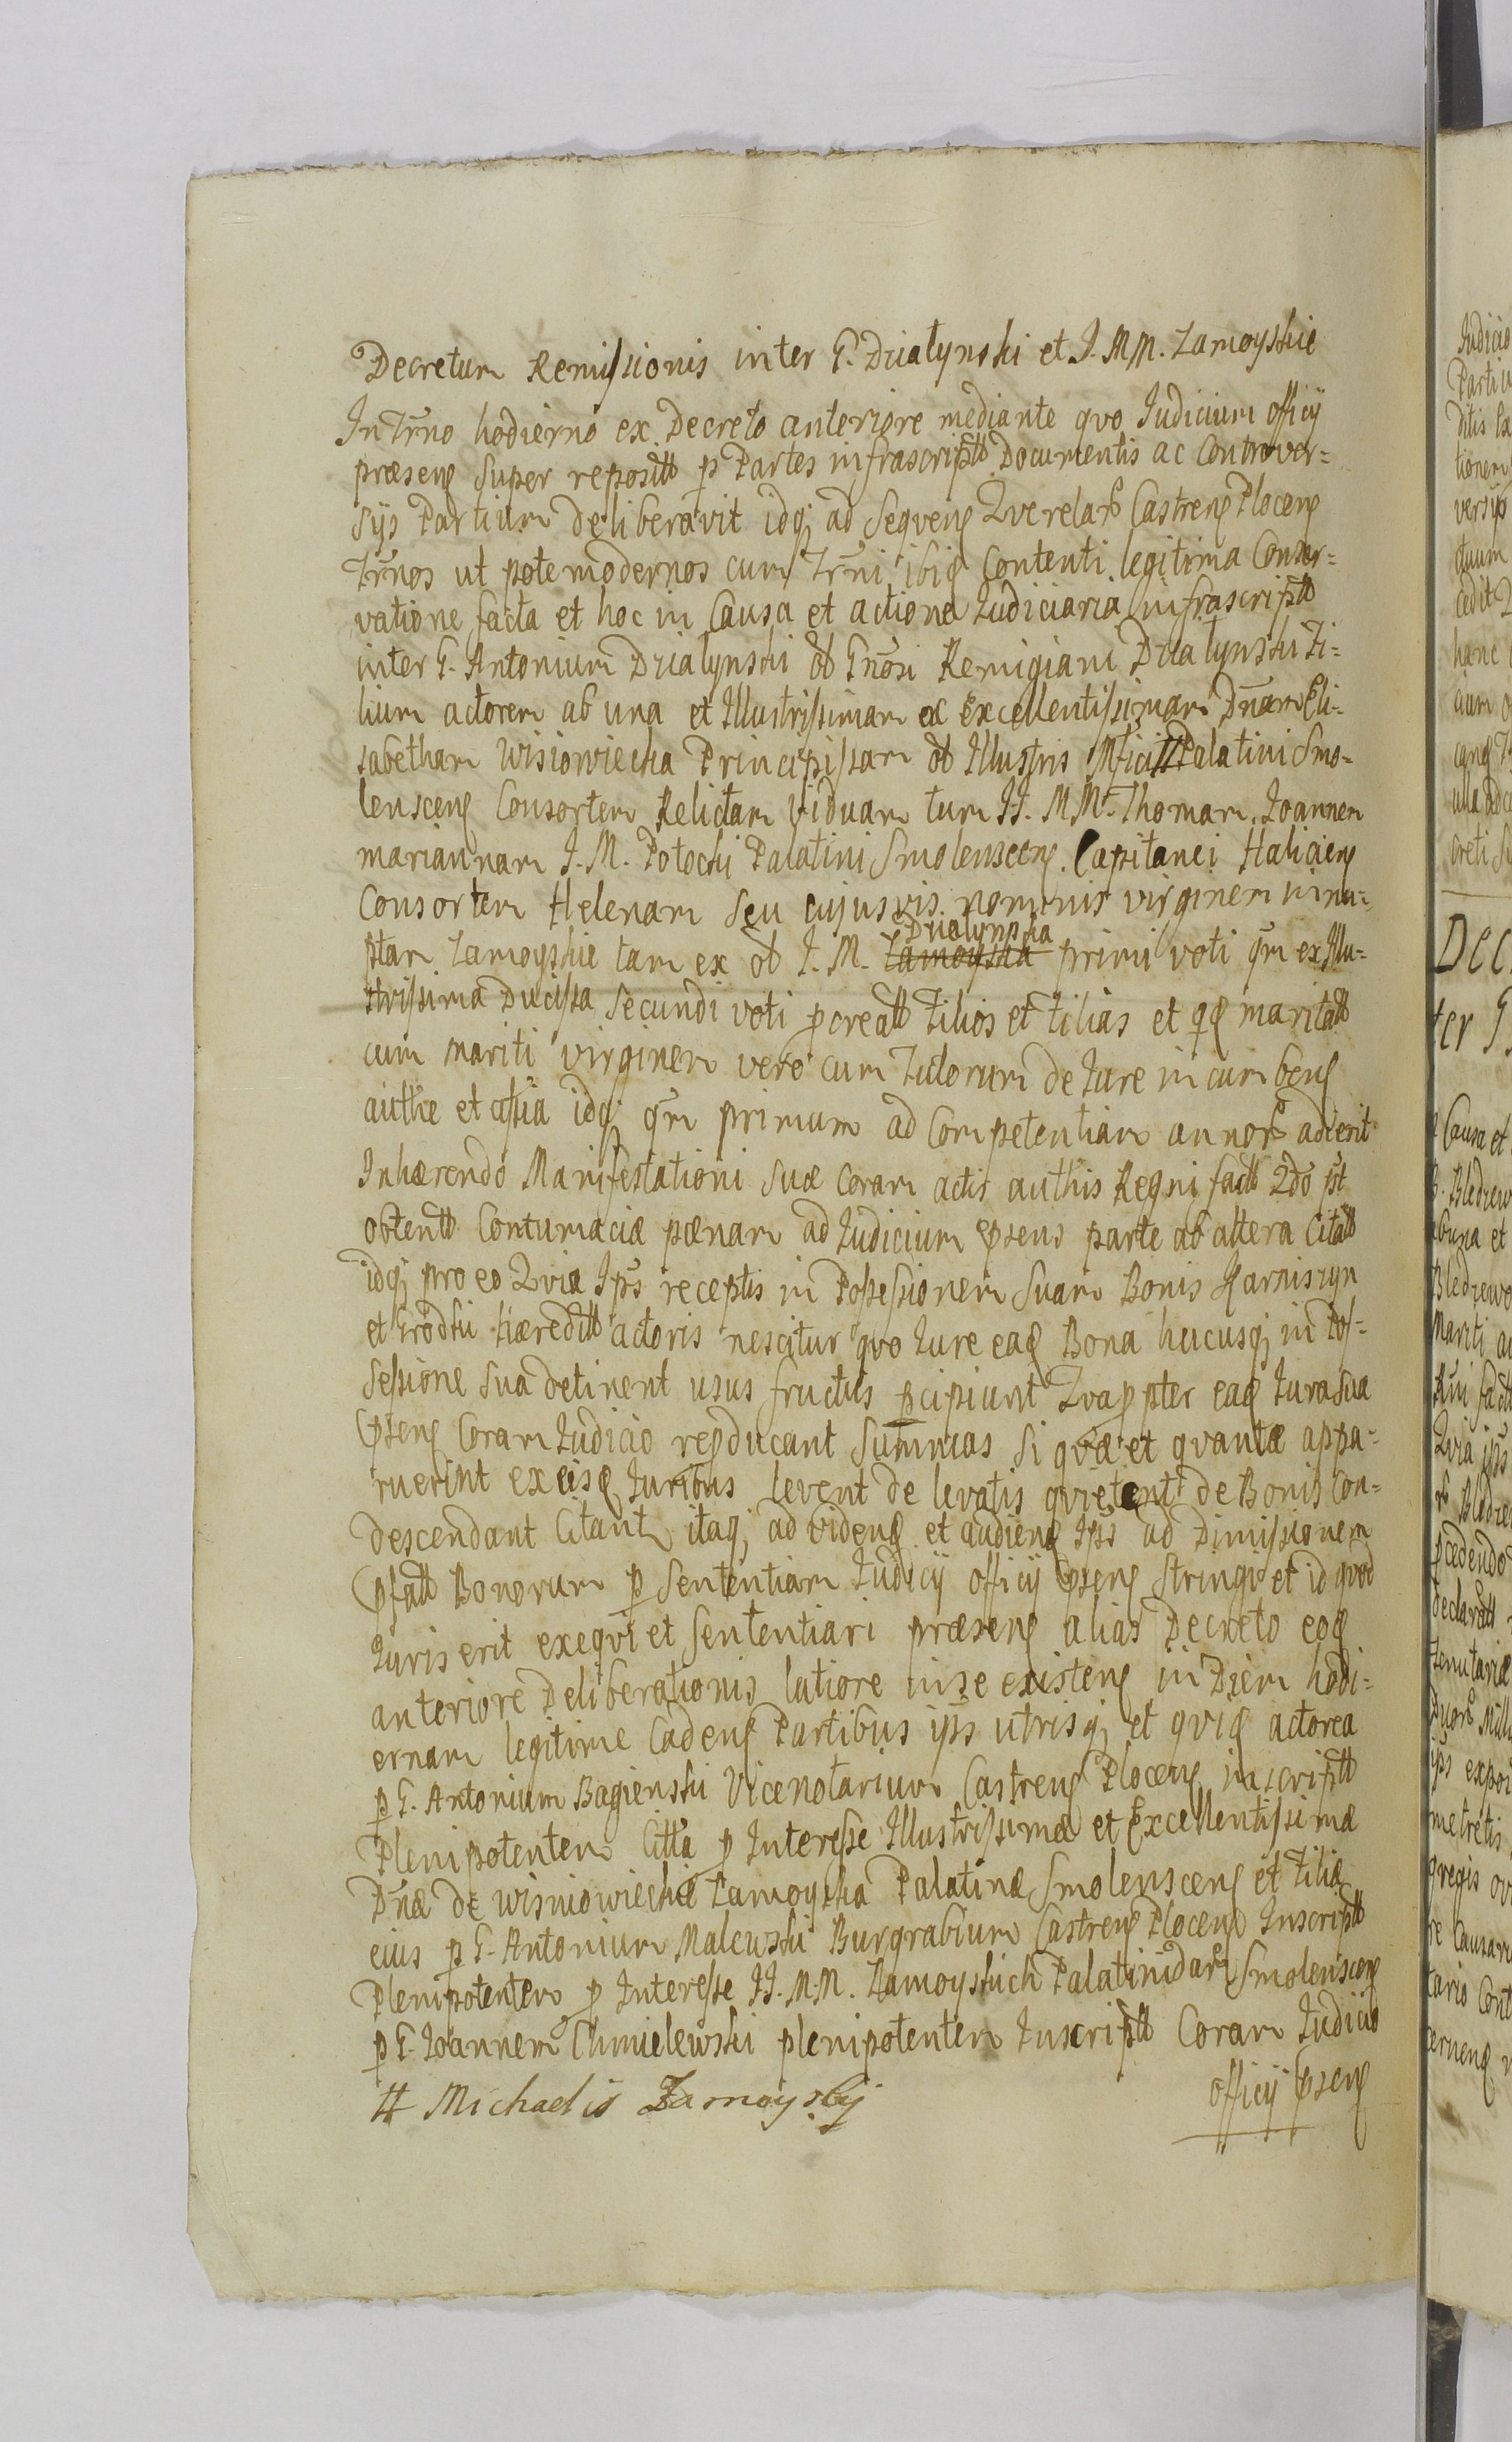 Decretum Remissionis inter G. Działynski et I. MM. Zamoyskie
In Trno hodierno ex Decreto anteriore mediante qvo Iudicium officij
præsens super repositt p Partes infrascriptt Documentis ac Controver=
sijs Partium deliberavit idq; ad seqvens Qverelar Castrens Plocens
Trnos ut pote modernos cum Trni ibid Contenti legitima Conser=
vatione facta et hoc in Causa et actione Iudiciaria infrascriptt
inter G. Antonium Działynski ol Gnosi Remigiani Działynski Fi=
lium actorem ab una et Illustrissimam ac Excellentissimam Dnam Eli=
sabetham Wisiowiecka Principissam ol Illustris Mfici # Palatini Smo=
lenscens Consortem Relictam Viduam tum II. MM. Thomam, Ioannem
mariannam I. M. Potocki Palatini Smolenscens. Capitanei Haliciens
Consortem Helenam seu cujusvis nominis virginem innu=
ptam Zamoyskie tam ex ol I. M. Zamoyska Działynska primi voti qm ex Illu=
strissima Ducissa secundi voti pcreatt Filios et Filias et qd maritatt
cum mariti virginem vero cum Tutorum de Iure incumbens
authe et assia idq; qm primum ad Competentiam annor adierit
Inhærendo Manifestationi suæ Coram actis authis Regni factt 2do pt
obtentt Contumaciæ pænam ad Iudicium psens parte ab altera Citatt
idq; pro eo Qvia Ips receptis in Possessionem suam Bonis Karniszyn
et Grodki hæreditt actoris nescitur qvo Iure ead Bona hucusq; in Pos=
sessione sua detinent usus fructus pcipiunt Qvappter ead Iura sua
psens Coram Iudicio repducant summas si qvæ et qvantæ appa=
ruerint ex eisd Iuribus levent de levatis qvietent de Bonis Con=
descendant Citant itaq; ad vidend et audiend Ips ad Dimissionem
pfatt Bonorum p Sententiam Iudicij officij psens stringi et id qvod
Iuris erit exeqvi et sententiari præsens alias Decreto eod
anteriore Deliberationis latiore in se existens in Diem hodi=
ernam legitime Cadens Partibus ips utrisq; et qvid actorea
p G. Antonium Bagienski Vicenotarium Castrens Plocens inscriptt
Plenipotentem Citta p Interesse Illustrissimæ et Excellentissimæ
Dnæ de Wisniowieckie Zamoyska Palatinæ Smolenscens et Filiæ
eius p G. Antonium Malewski Burgrabium Castrens Plocens Inscriptt
Plenipotentem p Interesse II. M.M. Zamoyskich Palatinidar Smolenscens
p G. Ioannem Chmielewski plenipotentem Inscriptt Coram Iudicio
officij psens
# Michaelis Zamoyskij